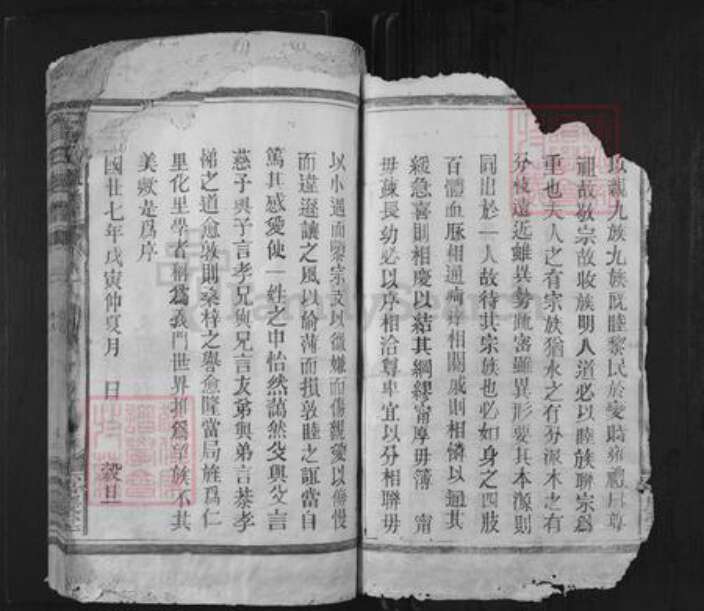 以親九族九族既睦黎民於變時雍禮曰尊
祖故敬宗敬宗故收族明人道必以睦族聯宗為
重也夫人之有宗族猶水之有分派木之有
分枝遠近雖異勢疏密雖異形要其本源則
同出於一人故待其宗族也必如身之四肢
百體血脉相通疴痒相關戚則相憐以通其
緩急喜則相慶以結其綢繆甯厚毋薄甯
毋疎長幼必以序相洽尊卑宜以分相聯毋
以小過而隳宗支以微嫌而傷親愛以傲慢
而違遜讓之風以偷薄而損敦睦之誼當自
篤其感愛使一姓之中怡然藹然父與父言
慈子與子言孝兄與兄言友弟與弟言恭孝
悌之道愈敦則桑梓之譽愈隆當局旌為仁
里化里學者稱為義門世界推為望族不其
美歟是為序
國廿七年戊寅仲夏月 日 穀旦
FamilySearch